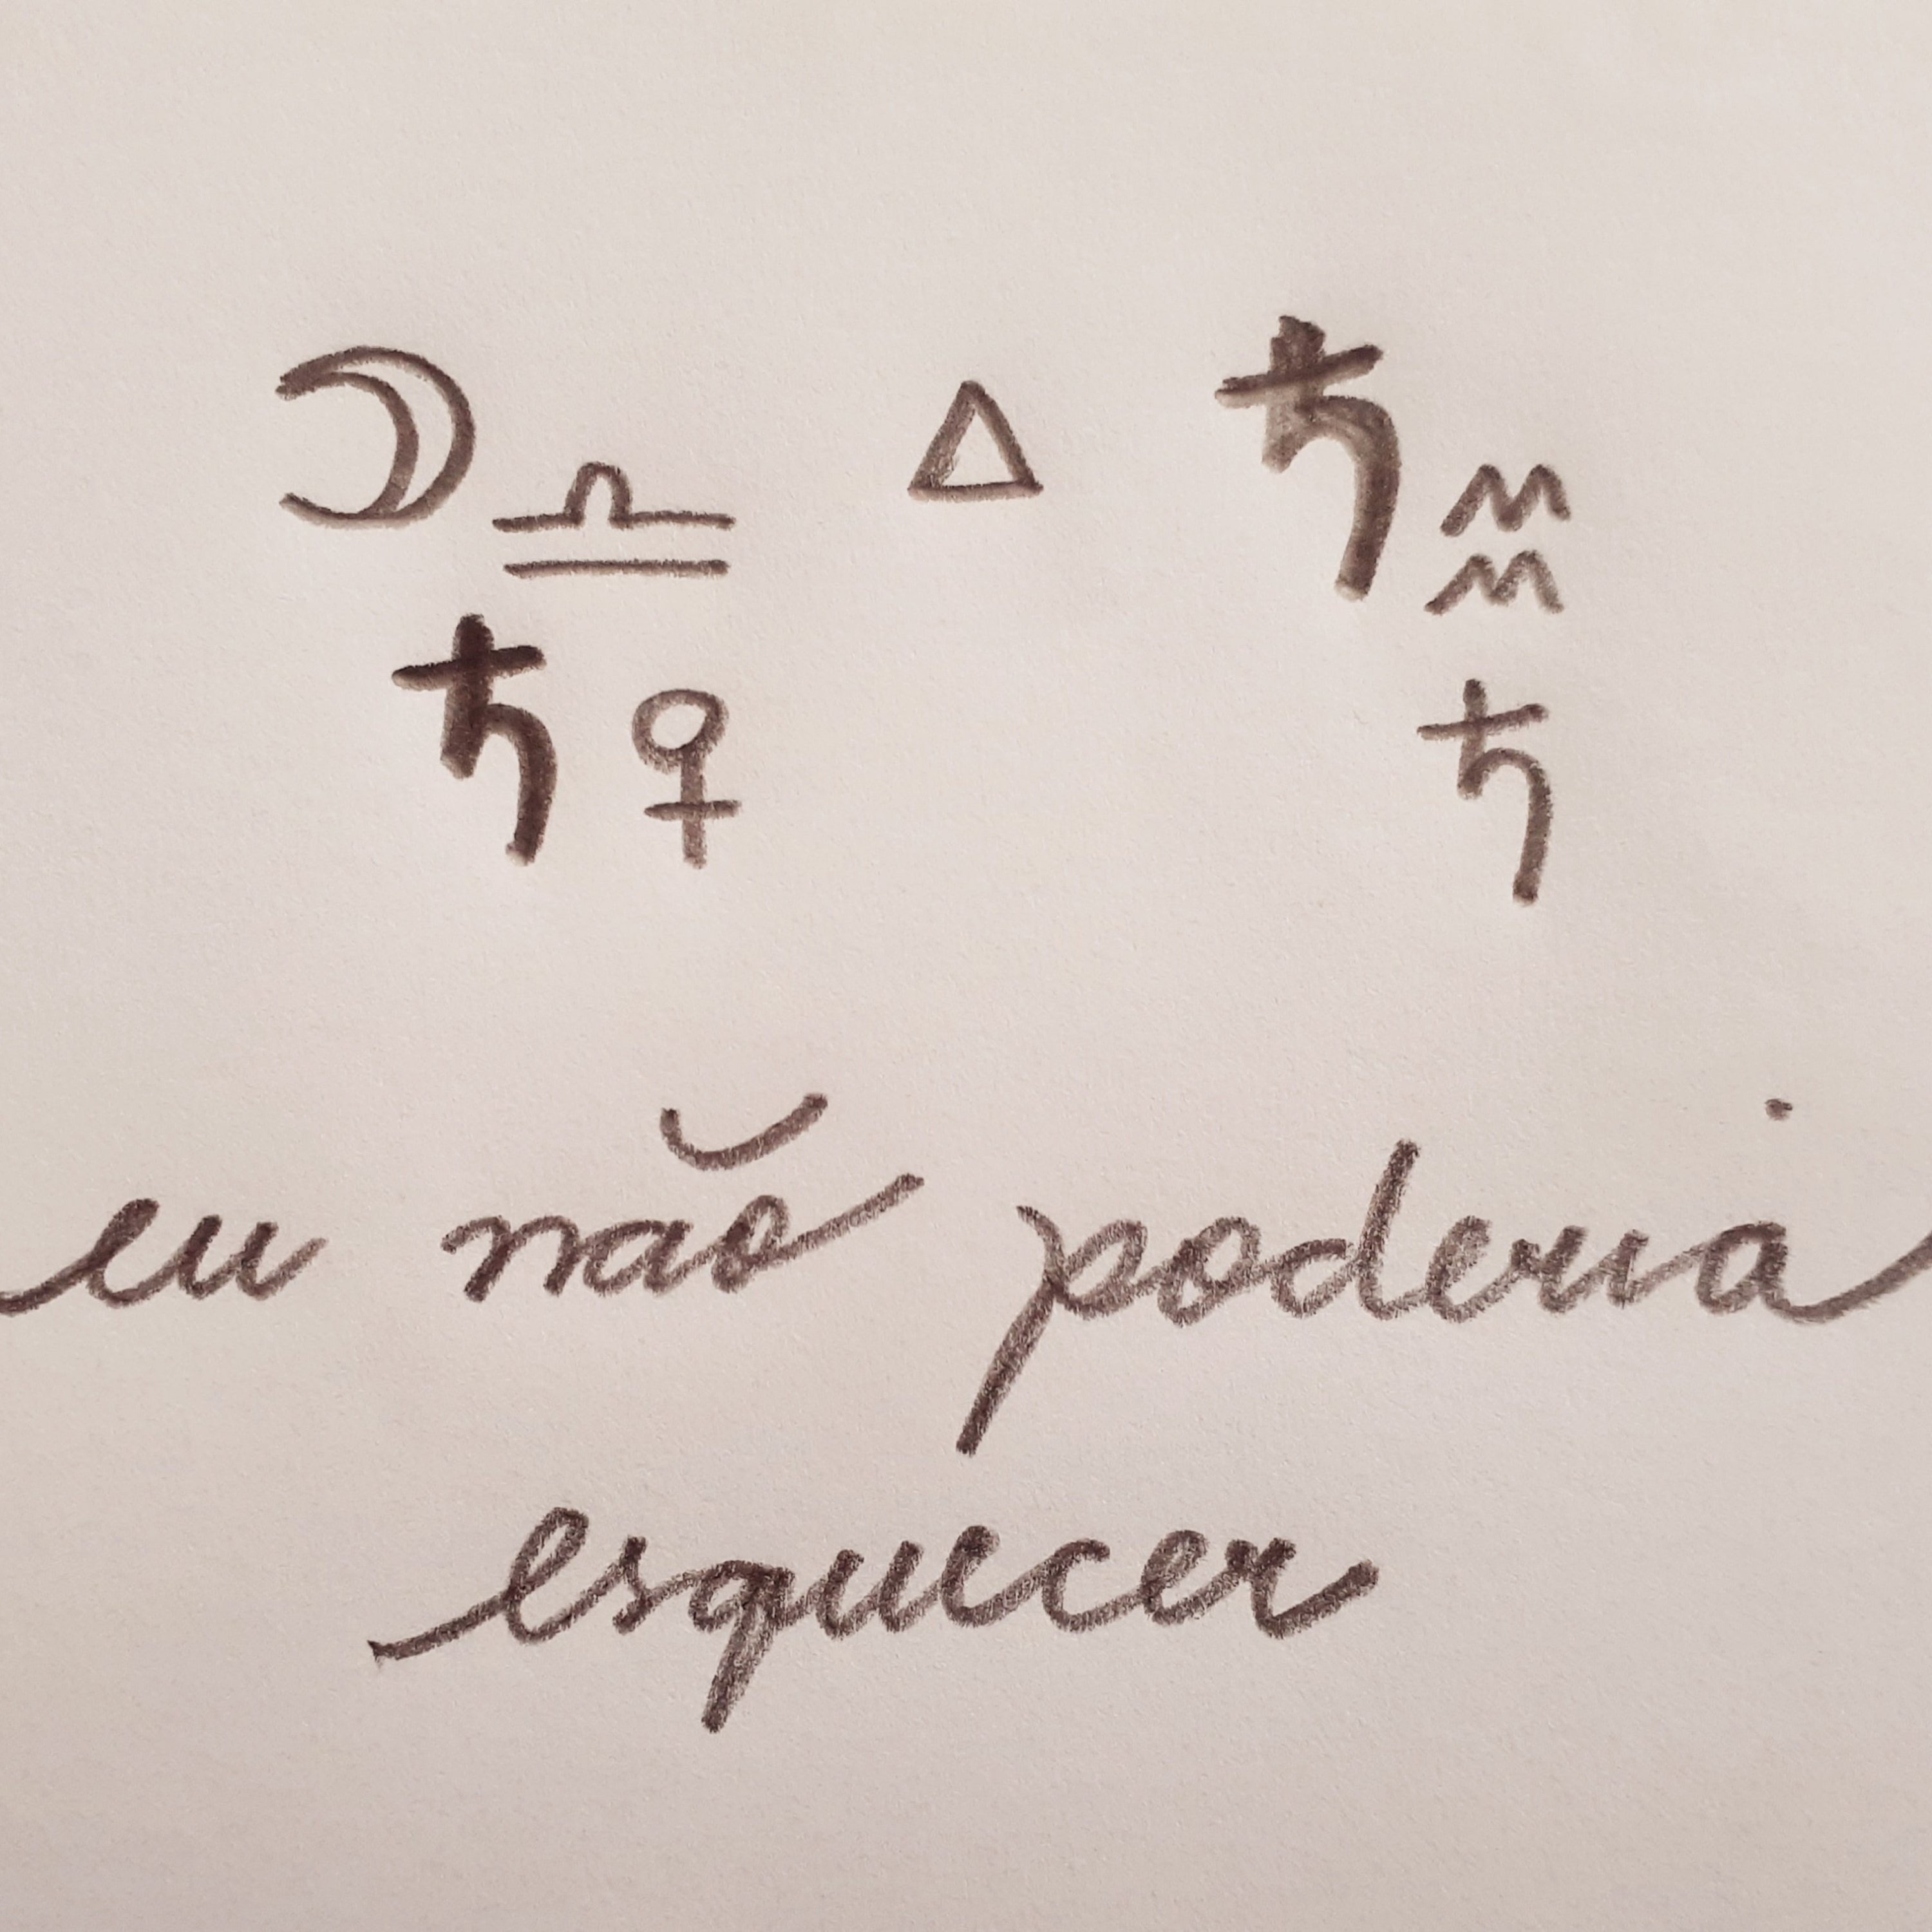 ☽♎ △ ♄♒
♄♀ ♄
eu não poderia
esquecer